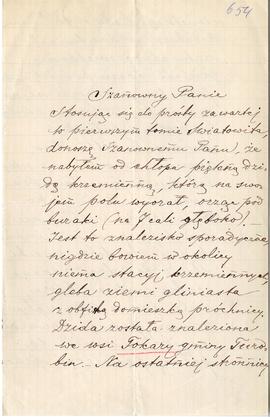 654
Szanowny Panie
Stosując się do prośby zawartej
w pierwszym tomie Światowita,
donoszę Szanownemu Panu, że
nabyłem od chłopa piękną dzi-
dę krzemienną, którą na swo-
jem polu wyorał, orząc pod
buraki (na 7 cali głęboko).
Jest to znalezisko sporadyczne,
nigdzie bowiem w okolicy
niema stacyj krzemiennych,
gleba ziemi gliniasta
z obfitą domieszką próchnicy.
Dzida została znaleziona
we wsi Tokary gminy Turo-
bin. Na ostatniej stronnicy